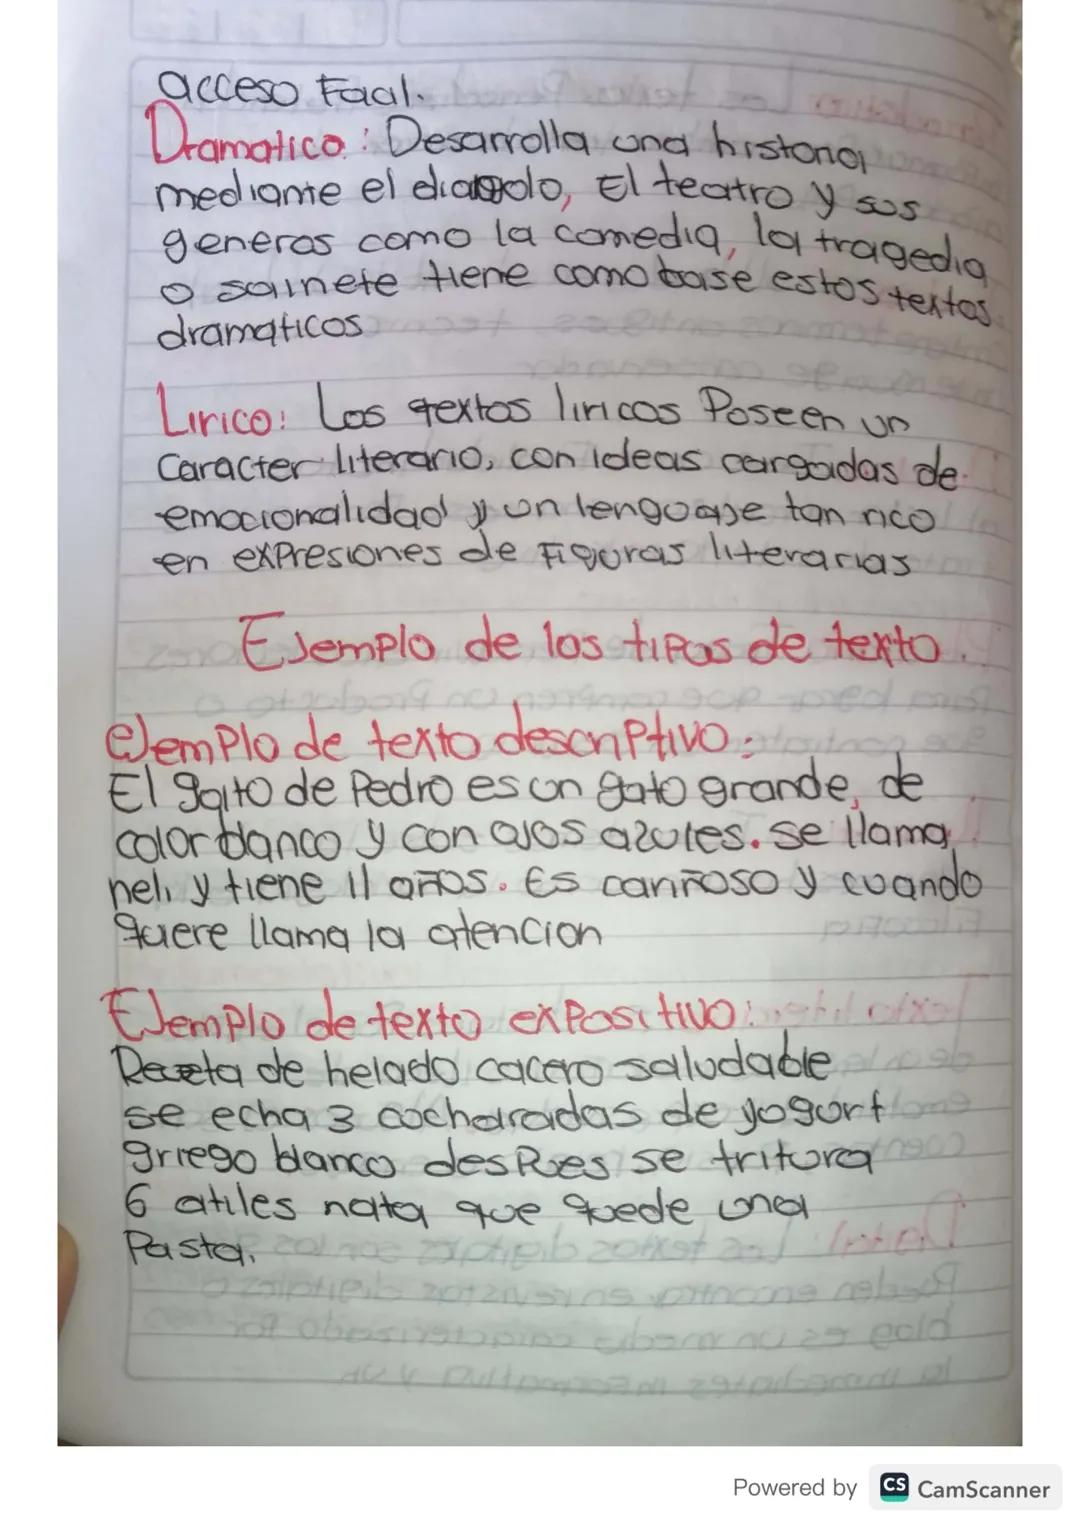 acceso Facil.
Dramatico: Desarrolla una historia
mediante el diagolo, El teatro y sus
generos como la comedia, la tragedia
o sainete tiene como base estos textos
dramaticos
Lirico: Los textos liricos Poseen un
Caracter literario, con ideas cargadas de
emocionalidad y un lenguaje tan rico
en exPresiones de Figuras literarias
EJemplo de los tiPos de texto.
eJemPlo de texto descriPtivo:
El gaito de Pedro es un gato grande, de
color blanco y con oJos azules. se llama
neli y tiene 11 años. Es cariñoso y cuando
quere llama la atencion
EJemplo de texto exPositivo:
Receta de helado cacero saludable
se echa 3 cocharadas de yogurt
griego blanco desPues se tritura
6 atiles nata que quede una
Pasta.
Powered by CS CamScanner